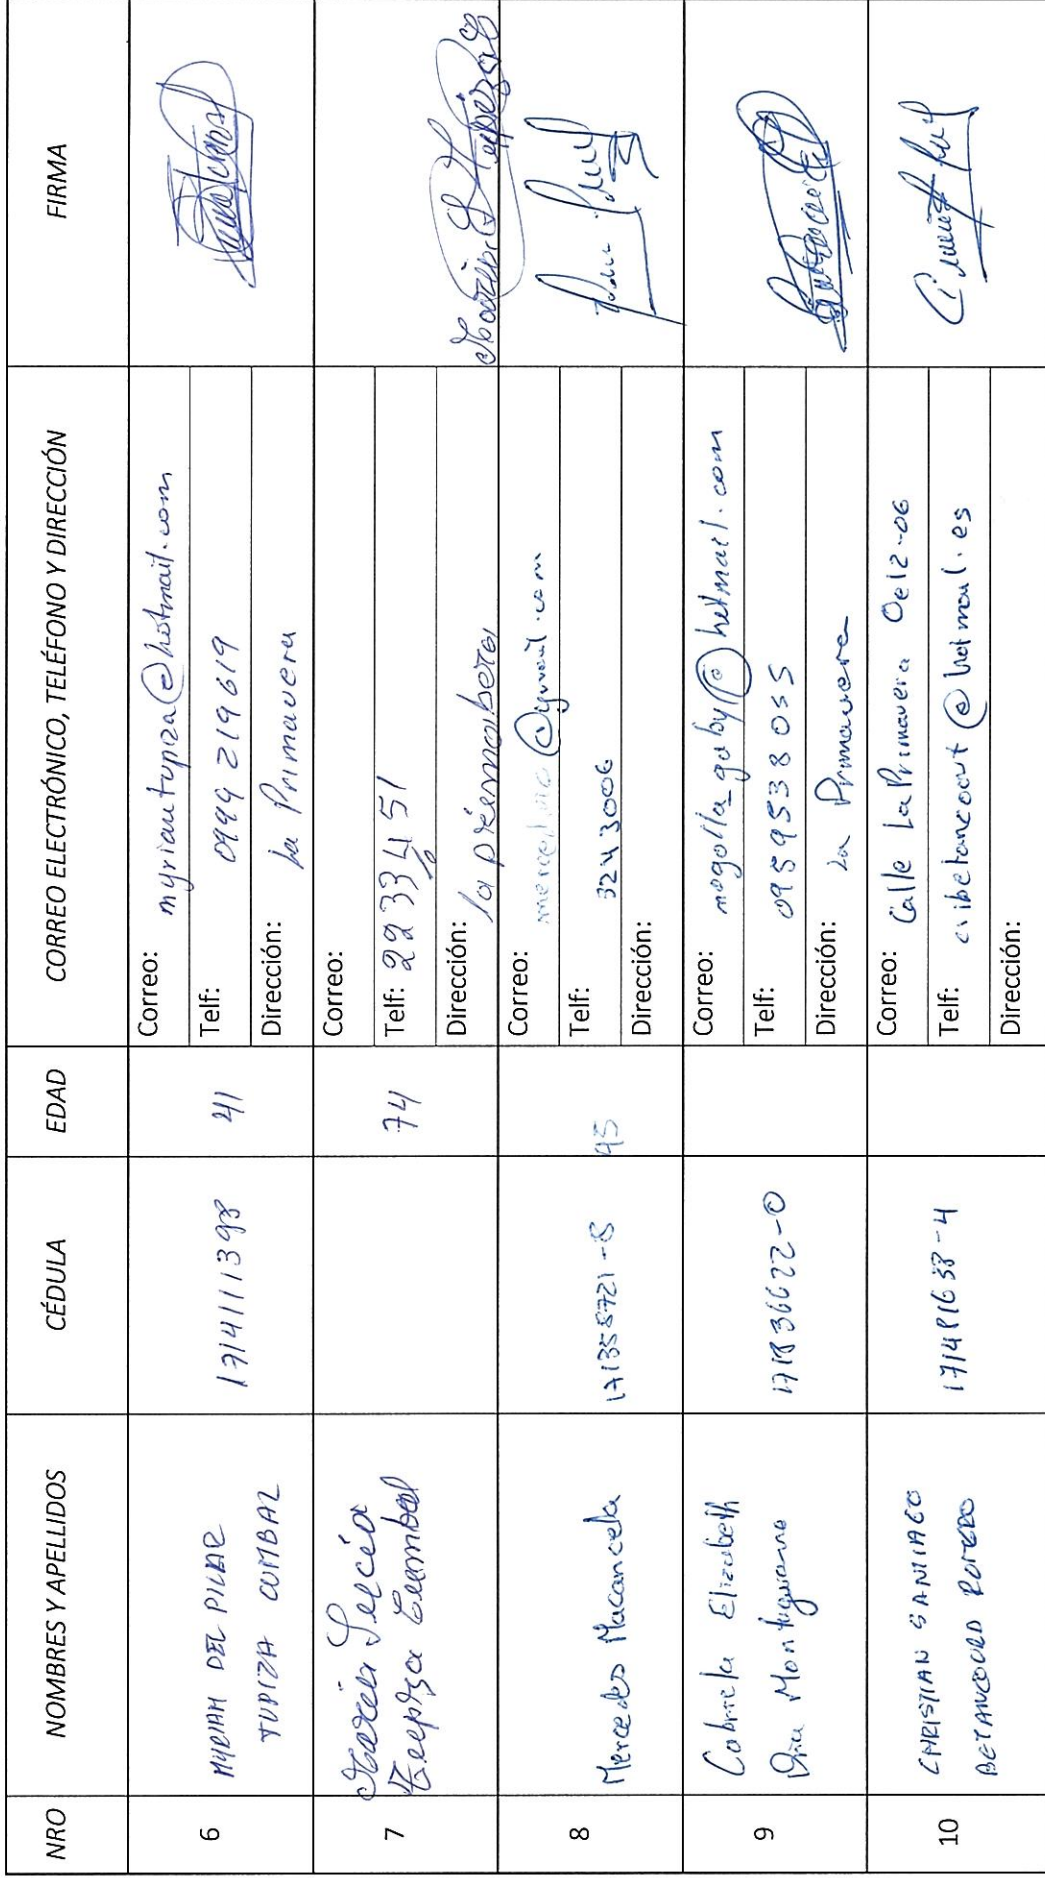 NRO NOMBRES Y APELLIDOS CÉDULA EDAD CORREO ELECTRÓNICO, TELÉFONO Y DIRECCIÓN FIRMA
6
MYRIAM DEL PILAR
TUPIZA CUMBAL
1714111398
41
Correo: myriantupiza@hotmail.com
Telf: 0999219619
Dirección: La Primavera
7
María
Cumbal
74
Correo:
Telf: 2233451
Dirección: la
8
Mercedes Macancela
171358721-8
45
Correo: @gmail.com
Telf: 3243006
Dirección:
9
Gabriela Elizabeth
171836622-0
Correo: mogolla_gaby@hotmail.com
Telf: 0959538055
Dirección: La Primavera
10
CHRISTIAN SANTIAGO
BETANCOURD ROMERO
171481638-4
Correo: Calle La Primavera Oe12-06
Telf: cribetancourt@hotmail.es
Dirección: